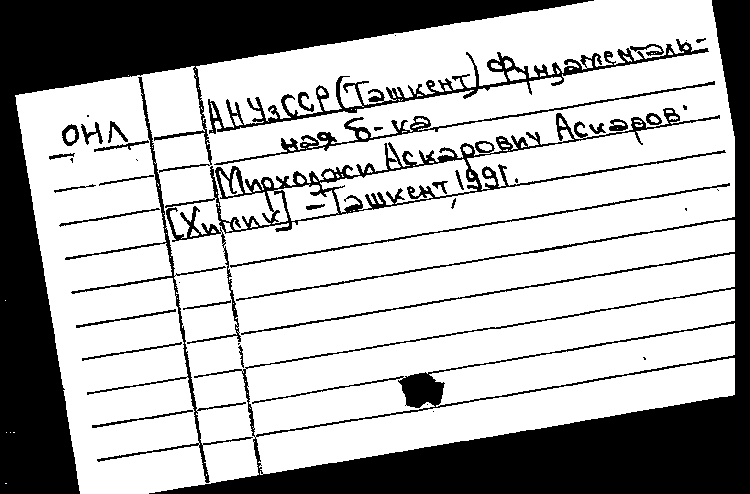 ОНЛ
АН УзССР (Ташкент). Фундаменталь-
ная б-ка.
Мирходжи Аскарович Аскаров.
[Химик]. - Ташкент, 1991.